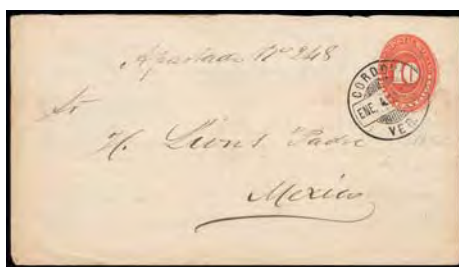 Apartado Nº 248
10
CORDO
ENE. 4
VER.
Sr
H. Lions Padre
Mexico